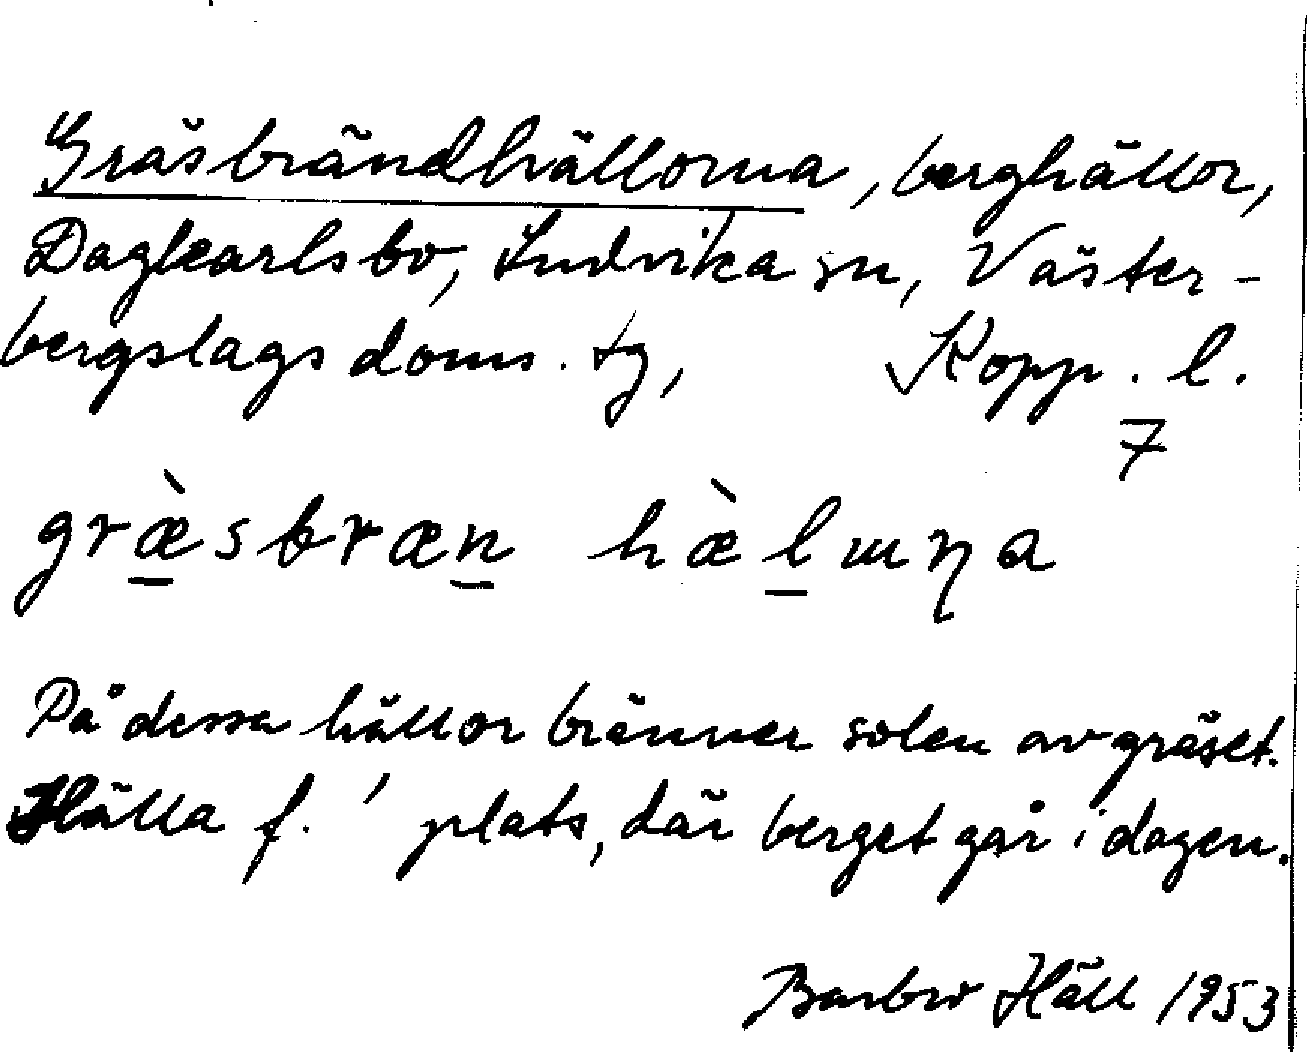 Gräsbrändhällorna, berghällor,
Dagkarlsbo, Ludvika sn, Väster-
bergslags doms. tg, Kopp. l.
7
græ̀sbræn hæ̀lɯņa
På dessa hällor bränner solen av gräset.
Hälla f. ' plats, där berget går i dagen.
Barbro Häll 1953